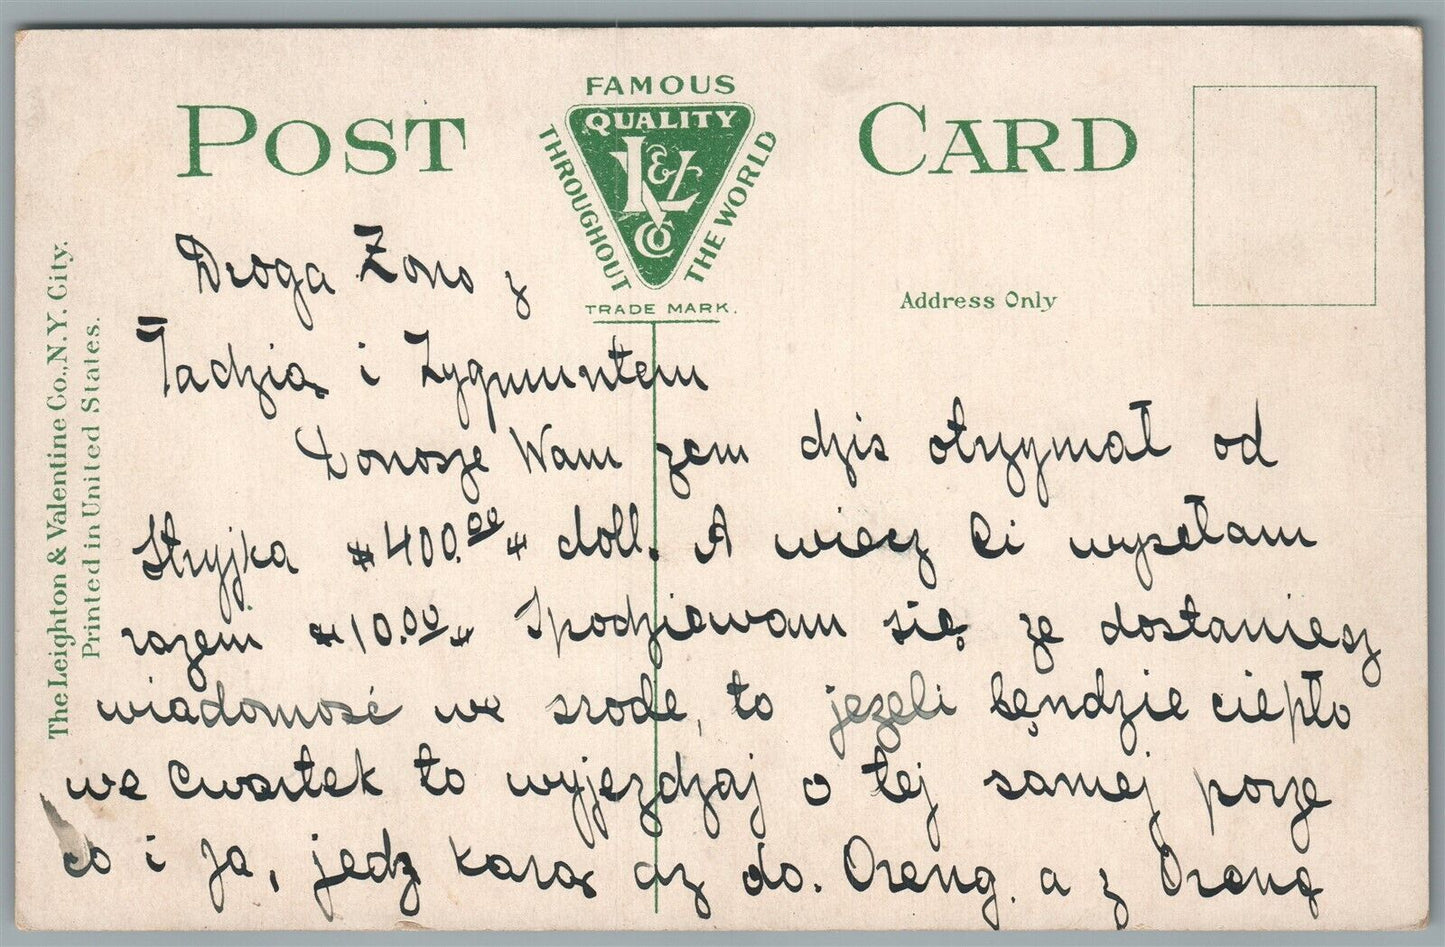 FAMOUS
QUALITY
THROUGHOUT
THE WORLD
L&V
CO
POST CARD
TRADE MARK.
Address Only
The Leighton & Valentine Co., N.Y. City.
Printed in United States.
Droga Żono z
Tadzią i Zygmuntem
Donosze Wam zem dzis otrzymał od
Stryjka #400.00 # doll. A wiecz Ci wysełam
razem #10.00 # Spodziewam się ze dostaniesz
wiadomość we srode, to jezeli będzie ciepło
we Cwartek to wyjezdzaj o tej samej porze
co i ja, jedz karą az do. Oreng. a z Oreng